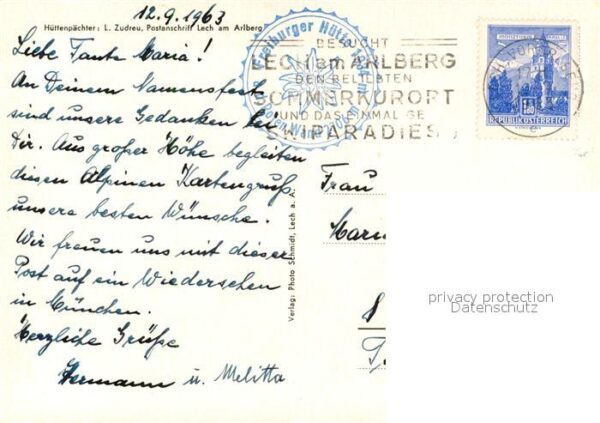 12.9.1963
Hüttenpächter: L. Zudreu, Postanschrift Lech am Arlberg
Liebe Tante Maria!
An Deinem Namensfest
sind unsere Gedanken bei
Dir. Aus großer Höhe begleiten
diesen Alpinen Kartengruß
unsere besten Wünsche.
Wir freuen uns mit dieser
Post auf ein Wiedersehen
in München.
Herzliche Grüße
Hermann u. Melitta
Verlag: Photo Schmidt, Lech a. A.
Freiburger Hütte
BESUCHT
LECH am ARLBERG
DEN BELIEBTEN
SOMMERKURORT
UND DAS EINMALIGE
SKIPARADIES
REPUBLIK ÖSTERREICH
Frau
Maria
privacy protection
Datenschutz